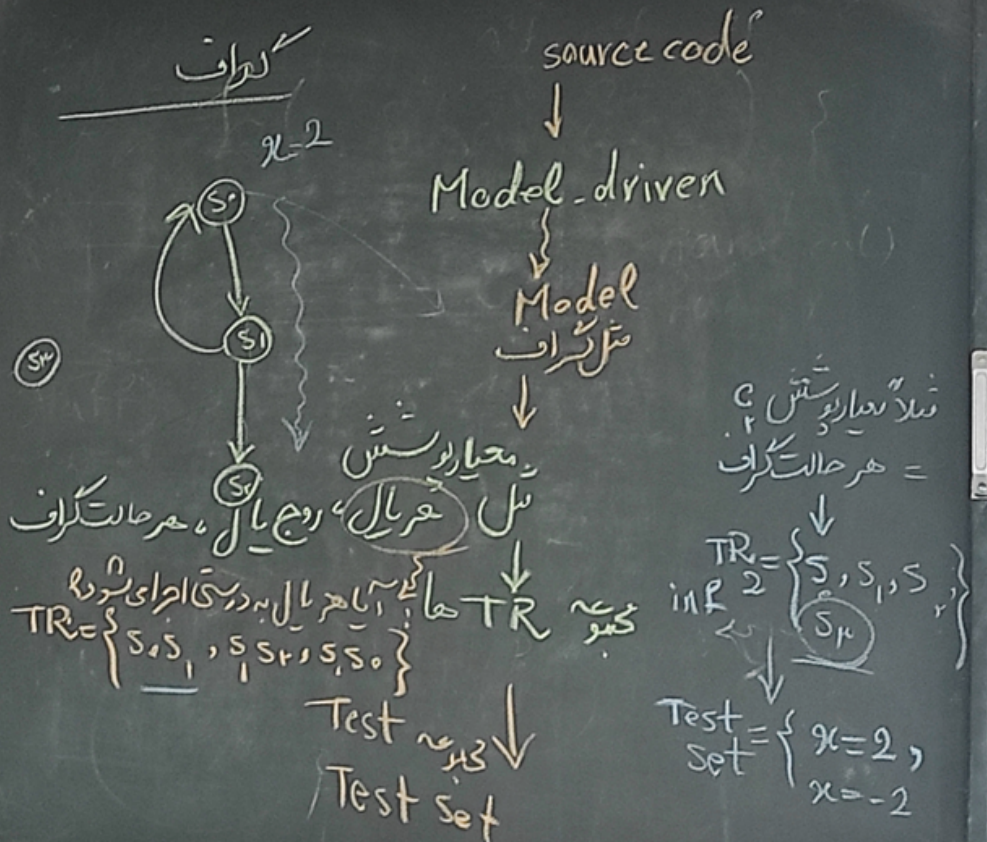 گراف
x=2
S۰
S۱
S۲
S۳
source code
Model-driven
Model
مثل گراف
معیار پوشش
مثل هر یال، زوج یال، هر حالت گراف
آیا هر یال به درستی اجرا می شود؟
مجموعه TR ها
TR={S۰S۱, S۱S۲, S۱S۰}
مجموعه Test
Test set
مثلاً معیار پوشش C۲
= هر حالت گراف
TR2={S۰, S۱, S۲,
S۳}
inf
Test set={x=2,
x=-2